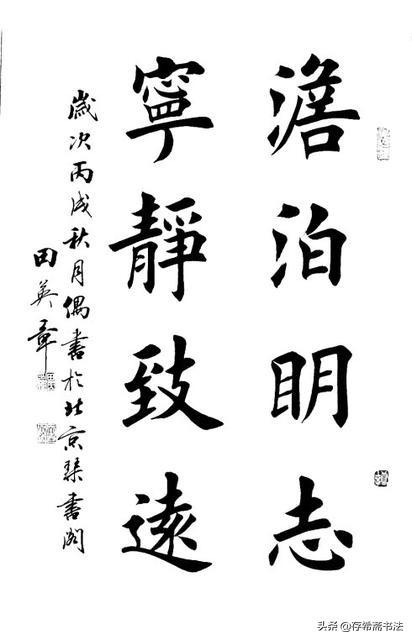 澹泊明志
寧靜致遠
歲次丙戌秋月偶書於北京琹書閣
田英章
头条 @存希斋书法